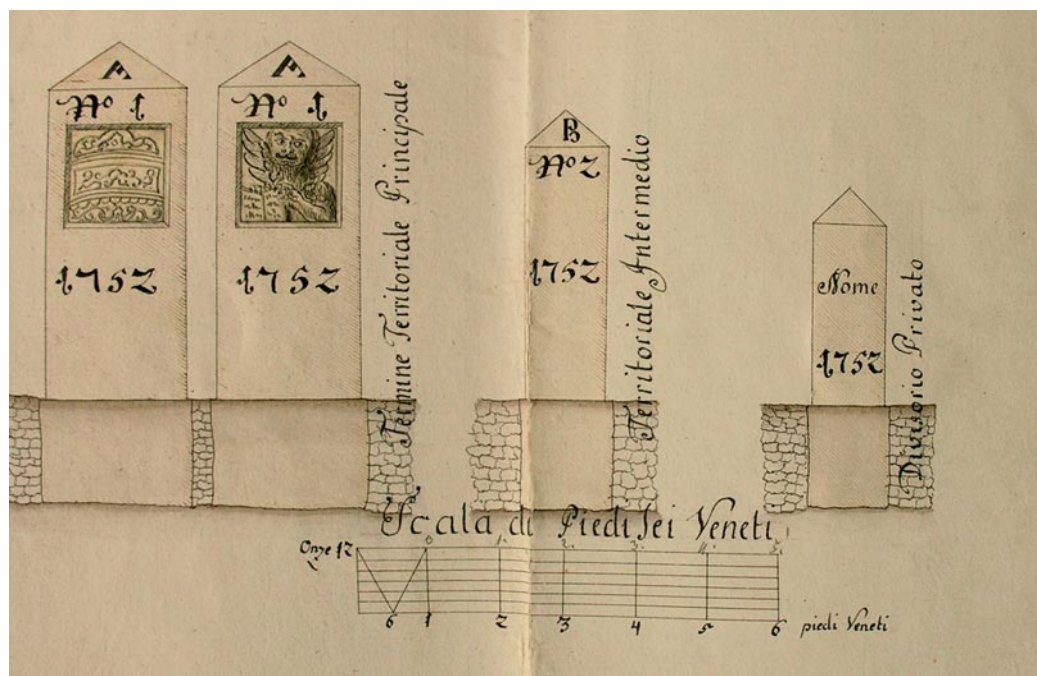 A
Nº 1
1752
A
Nº 1
1752
Termine Territoriale Principale
B
Nº 2
1752
Territoriale Intermedio
Nome
1752
Divisorio Privato
Scala di Piedi sei Veneti
Onze 12
0 1. 2. 3. 4. 5.
6 1 2 3 4 5 6 piedi Veneti